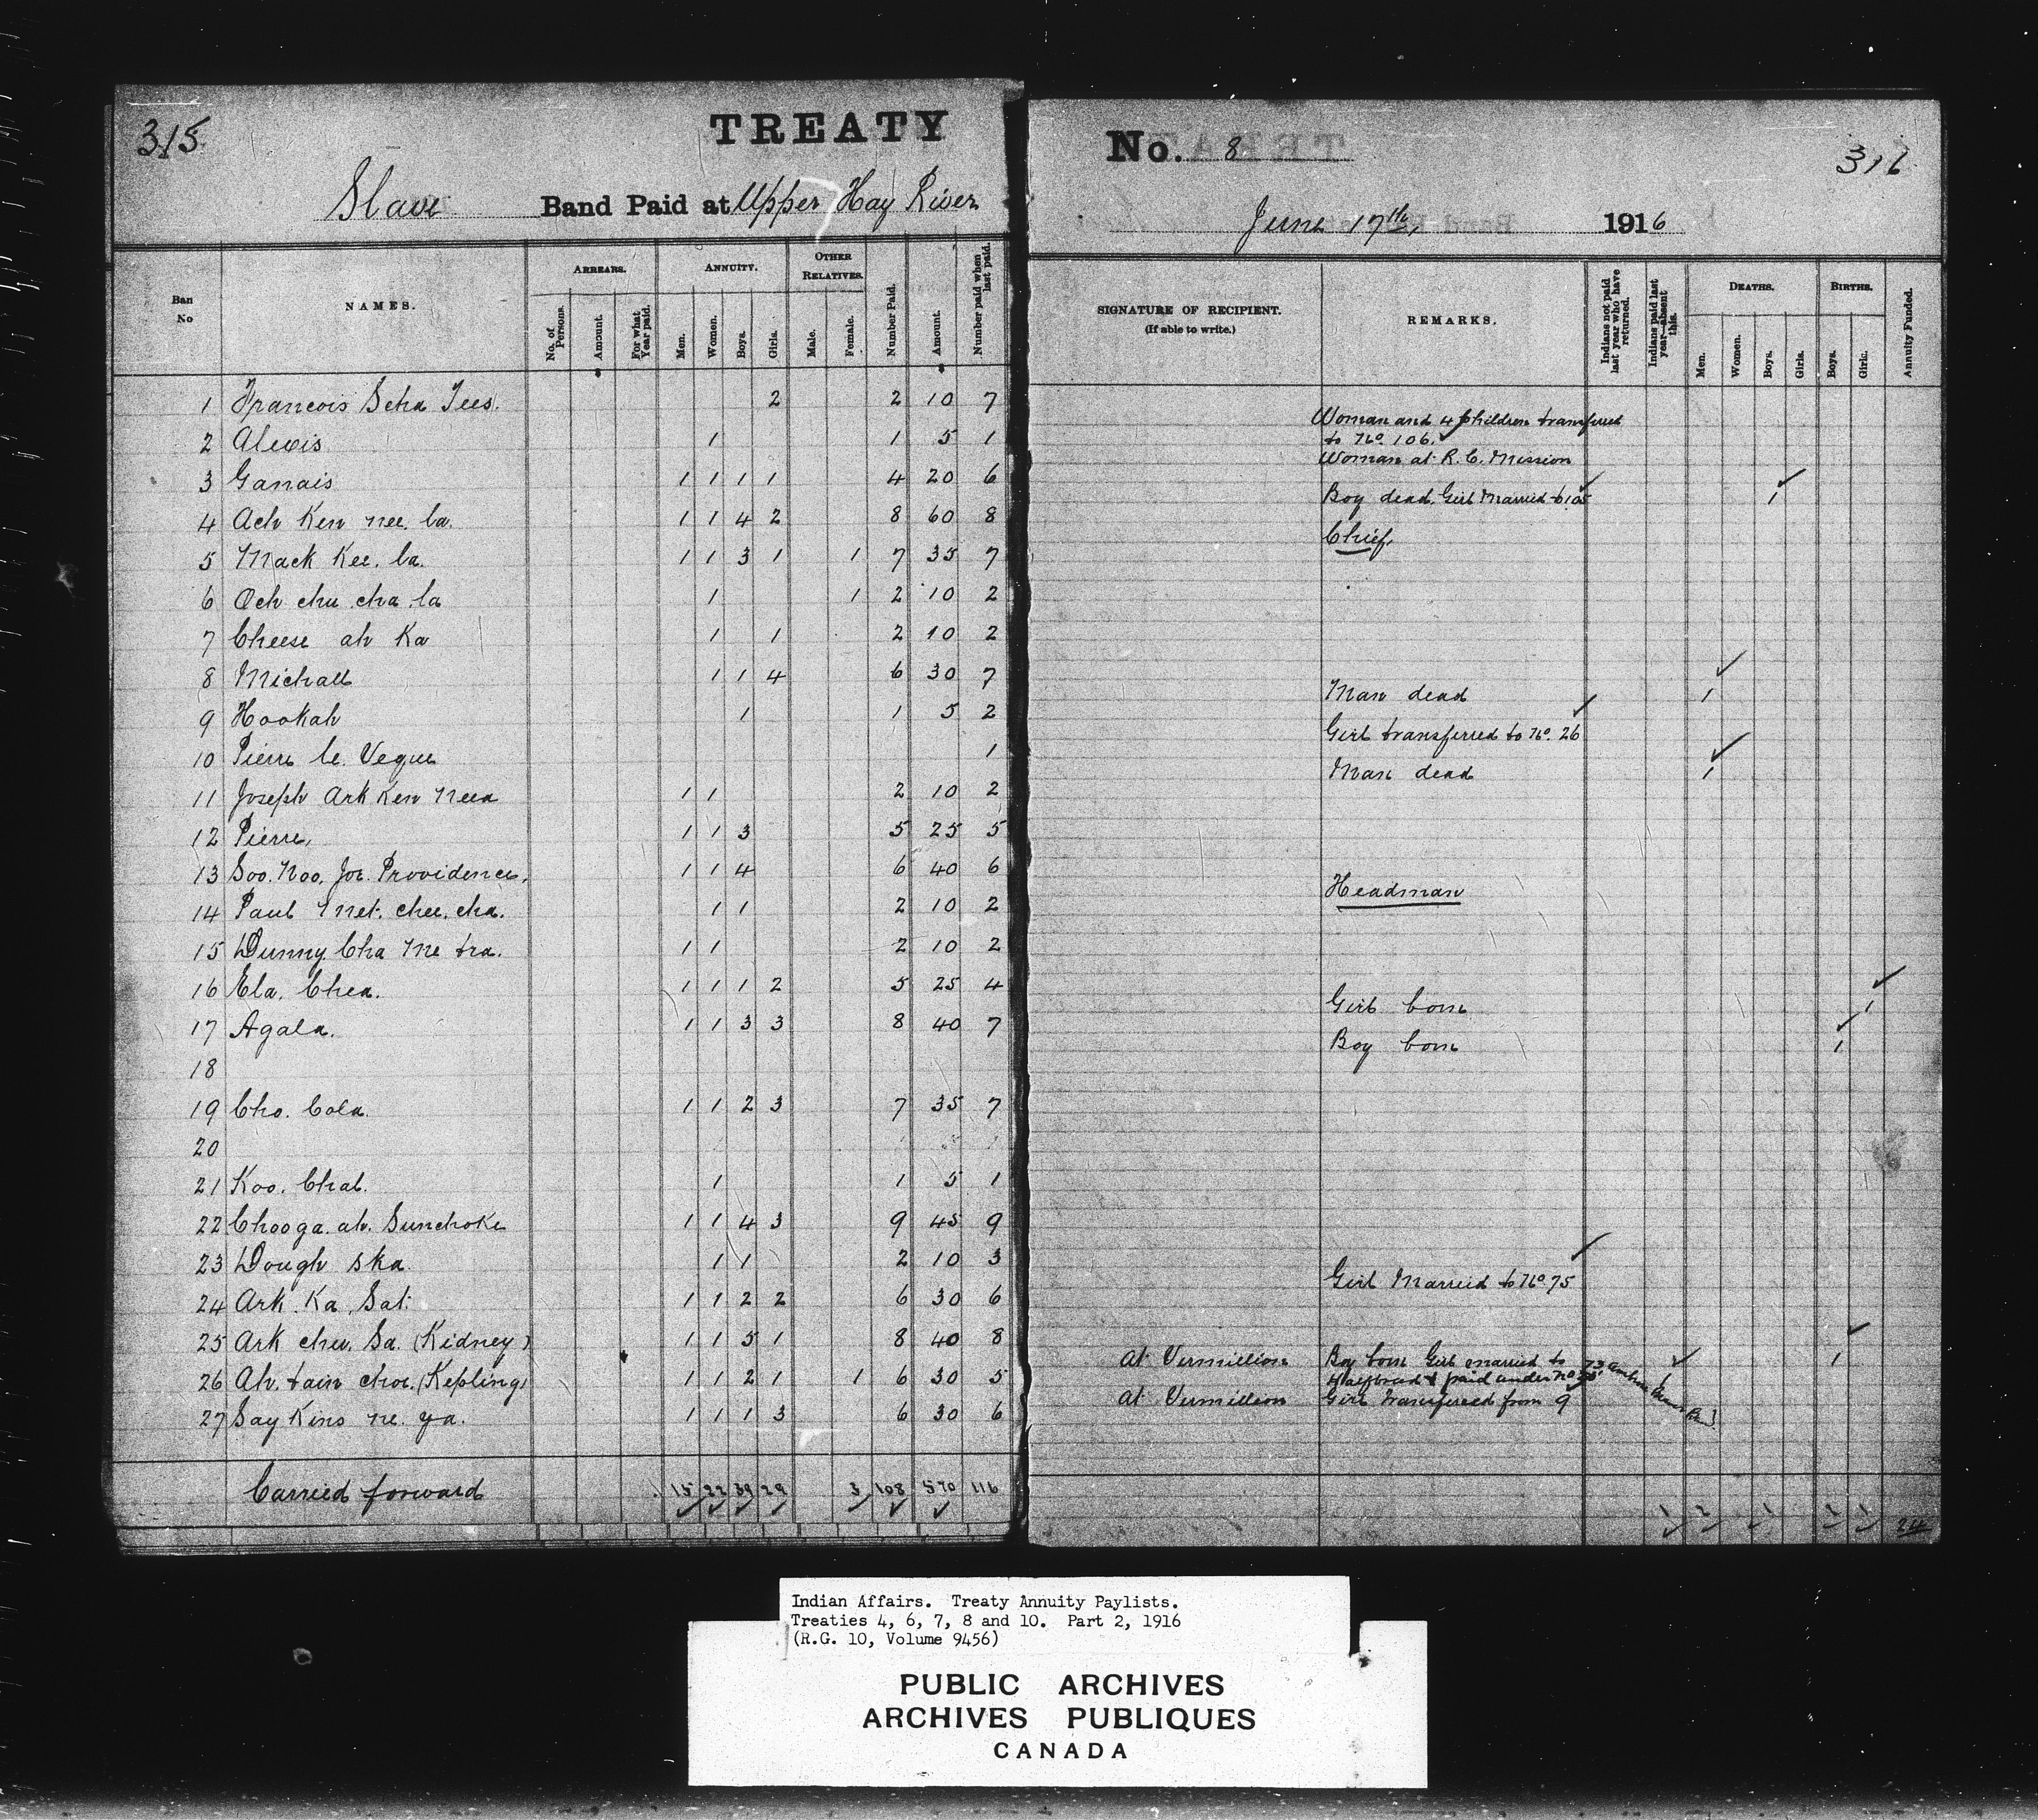 315
TREATY
Slave Band Paid at Upper Hay River
Ban No
NAMES.
ARREARS.
ANNUITY.
OTHER RELATIVES.
No. of Persons.
Amount.
For what Year paid.
Men.
Women.
Boys.
Girls.
Male.
Female.
Number Paid.
Amount.
Number paid when last paid.
1 Francois Scha Tees. 2 2 10 7
2 Alexis 1 1 5 1
3 Ganais 1 1 1 1 4 20 6
4 Ach Ken nee. la. 1 1 4 2 8 60 8
5 Mack Kee. la. 1 1 3 1 1 7 35 7
6 Och chu cha la 1 1 2 10 2
7 Cheese ah Ka 1 1 2 10 2
8 Michall 1 1 4 6 30 7
9 Hookah 1 1 5 2
10 Pierre le. Vegue 1
11 Joseph Ark Ken Neea 1 1 2 10 2
12 Pierre, 1 1 3 5 25 5
13 Soo. Noo. Joe. Providence, 1 1 4 6 40 6
14 Paul Met. chee. cha. 1 1 2 10 2
15 Dunny Cha Me tra. 1 1 2 10 2
16 Ela. Chea. 1 1 1 2 5 25 4
17 Agala. 1 1 3 3 8 40 7
18
19 Cho. Cola. 1 1 2 3 7 35 7
20
21 Koo. Chal. 1 1 5 1
22 Chooga. ah. Sunchoke 1 1 4 3 9 45 9
23 Dough ska 1 1 2 10 3
24 Ark. Ka. Sat. 1 1 2 2 6 30 6
25 Ark chu. Sa. (Kidney) 1 1 5 1 8 40 8
26 Ah. tain choe. (Kepling) 1 1 2 1 1 6 30 5
27 Say Kins ne. ya. 1 1 1 3 6 30 6
Carried forward 15 22 39 29 3 108 570 116
No. 8
316
June 17th, 1916
SIGNATURE OF RECIPIENT.
(If able to write.)
REMARKS.
Indians not paid last year who have returned.
Indians paid last year—absent this.
DEATHS.
BIRTHS.
Men.
Women.
Boys.
Girls.
Boys.
Girls.
Annuity Funded.
Woman and 4 Children transferred
to No. 106.
Woman at R. C. Mission
Boy dead. Girl Married to 105 1
Chief,
Man dead 1
Girl transferred to No. 26
Man dead 1
Headman
Girl born 1
Boy born 1
Girl Married to No. 75
At Vermillion Boy born Girl married to 73 1
Halfbreed & paid under No
At Vermillion Girl transferred from 9
1 2 1 2 1 24
Indian Affairs. Treaty Annuity Paylists.
Treaties 4, 6, 7, 8 and 10. Part 2, 1916
(R.G. 10, Volume 9456)
PUBLIC ARCHIVES
ARCHIVES PUBLIQUES
CANADA